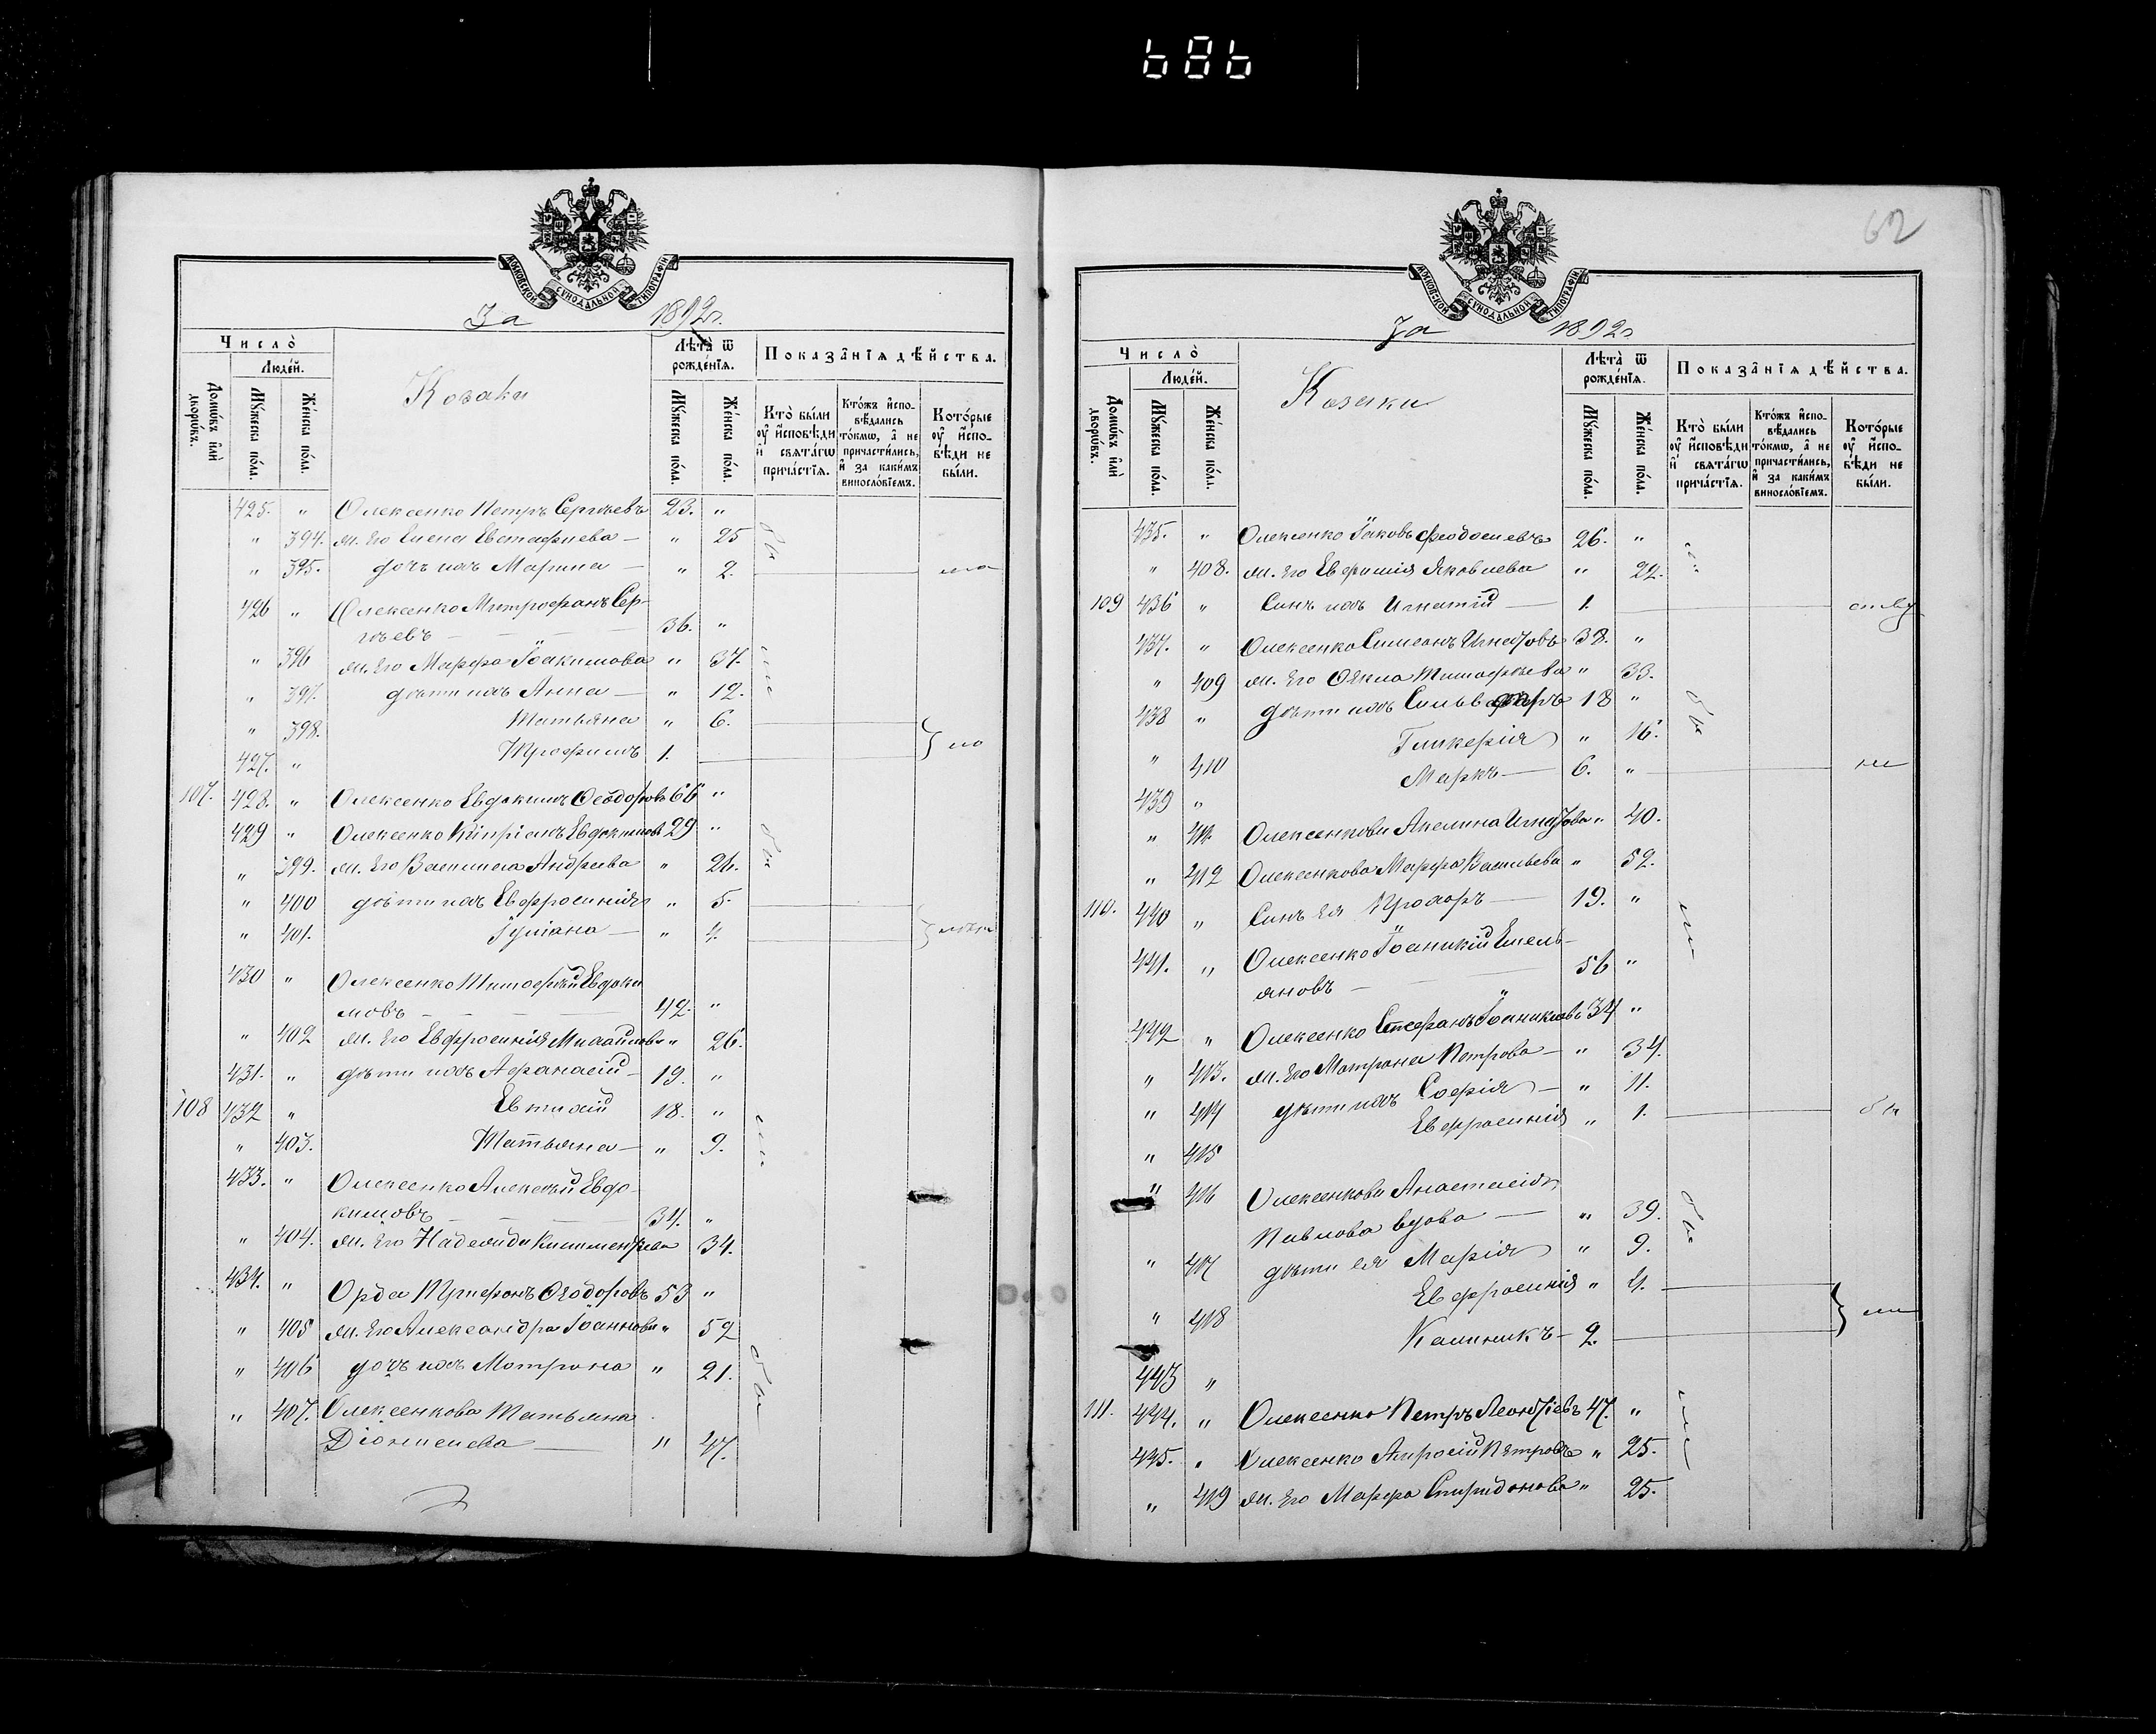 686
МОСКОВСКОЙ СѴНОДАЛЬНОЙ ТИПОГРАФІИ
За 1892 г.
Число̀
Людéй.
Домѡ́въ и҆лѝ дворѡ́въ.
Мꙋ́жеска по́ла.
Же́нска по́ла.
Козаки
Лѣ́та ѿ рожде́нїѧ.
Мꙋ́жеска по́ла.
Же́нска по́ла.
Показа̑нїѧ дѣ́йства.
Кто̀ бы́ли оу҆ и҆сповѣди и҆ свѧта́гѡ прича́стїѧ.
Кто́жъ и҆спо-вѣдались то́кмѡ, а҆ не причасти́лись, и҆ за каки́мъ винослові́емъ.
Кото́рые оу҆ и҆спо-вѣди не бы́ли.
425. " Олексенко Петръ Сергѣевъ 23. "
" 394. ж. его Елена Евстафиева — " 25
" 395. дочь ихъ Марина — " 2.
426 " Олексенко Митрофанъ Сер-
гѣевъ — 36. "
" 396 ж. его Марфа Іоакимова " 37.
" 397. дѣти ихъ Анна — " 12.
" 398. Татьяна " 6.
427. " Трофимъ 1.
107. 428. " Олексенко Евдокимъ Ѳеодоровъ 66 "
429 " Олексенко Кипріанъ Евдокимовъ 29 "
" 399. ж. его Василиса Андреева " 26.
" 400 дѣти ихъ Евфросинія " 5.
" 401. Іуліана — " 4.
430 " Олексенко Тимофей Евдоки
мовъ — 42. "
" 402 ж. его Евфросинія Михайлова " 26.
431. " дѣти ихъ Афанасій — 19. "
108 432 " Евтихій 18. "
" 403. Татьяна — " 9.
433. " Олексенко Алексѣй Евдо-
кимовъ — 34. "
" 404. ж. его Надежда Климентьева 34.
434. " Орда Трифонъ Ѳеодоровъ 53 "
" 405 ж. его Александра Іоаннова " 52
" 406 дочь ихъ Матрона " 21.
" 407. Олексенкова Татьяна
Діонисиева — " 47.
62
МОСКОВСКОЙ СѴНОДАЛЬНОЙ ТИПОГРАФІИ
За 1892 г.
Число̀
Людéй.
Домѡ́въ и҆лѝ дворѡ́въ.
Мꙋ́жеска по́ла.
Же́нска по́ла.
Козаки
Лѣ́та ѿ рожде́нїѧ.
Мꙋ́жеска по́ла.
Же́нска по́ла.
Показа̑нїѧ дѣ́йства.
Кто̀ бы́ли оу҆ и҆сповѣди и҆ свѧта́гѡ прича́стїѧ.
Кто́жъ и҆спо-вѣдались то́кмѡ, а҆ не причасти́лись, и҆ за каки́мъ винослові́емъ.
Кото́рые оу҆ и҆спо-вѣди не бы́ли.
435. " Олексенко Іаковъ Феодосиевъ 26. "
" 408. ж. его Евфимія Яковлева " 22.
109 436 " Сынъ ихъ Игнатій — 1.
437. " Олексенко Симеонъ Игнатовъ 38. "
" 409 ж. его Ѳекла Тимофѣева " 33.
438 " дѣти ихъ 18 "
" 410 Гликерія " 16.
439 " Маркъ — 6. "
" 411. Олексенкова Акелина Игнатова " 40.
" 412 Олексенкова Марфа Васильева " 52.
110. 440 " Сынъ ея Прохоръ — 19. "
441. " Олексенко Іоаникій Емель-
яновъ — 56 "
442 " Олексенко Стефанъ Іоаникиевъ 34 "
" 413. ж. его Матрона Петрова — " 34.
" 414 дѣти ихъ Софія — " 11.
" 415 Евфросинія " 1.
" 416 Олексенкова Анастасія
Павлова вдова — " 39.
" 417 дѣти ея Марія " 9.
" 418 Евфросинія " 4.
443 " Калиникъ — 2.
111. 444. " Олексенко Петръ Леонтіевъ 47. "
445. " Олексенко Амросій Петровъ " 25.
" 419 ж. его Марфа Спиридонова " 25.